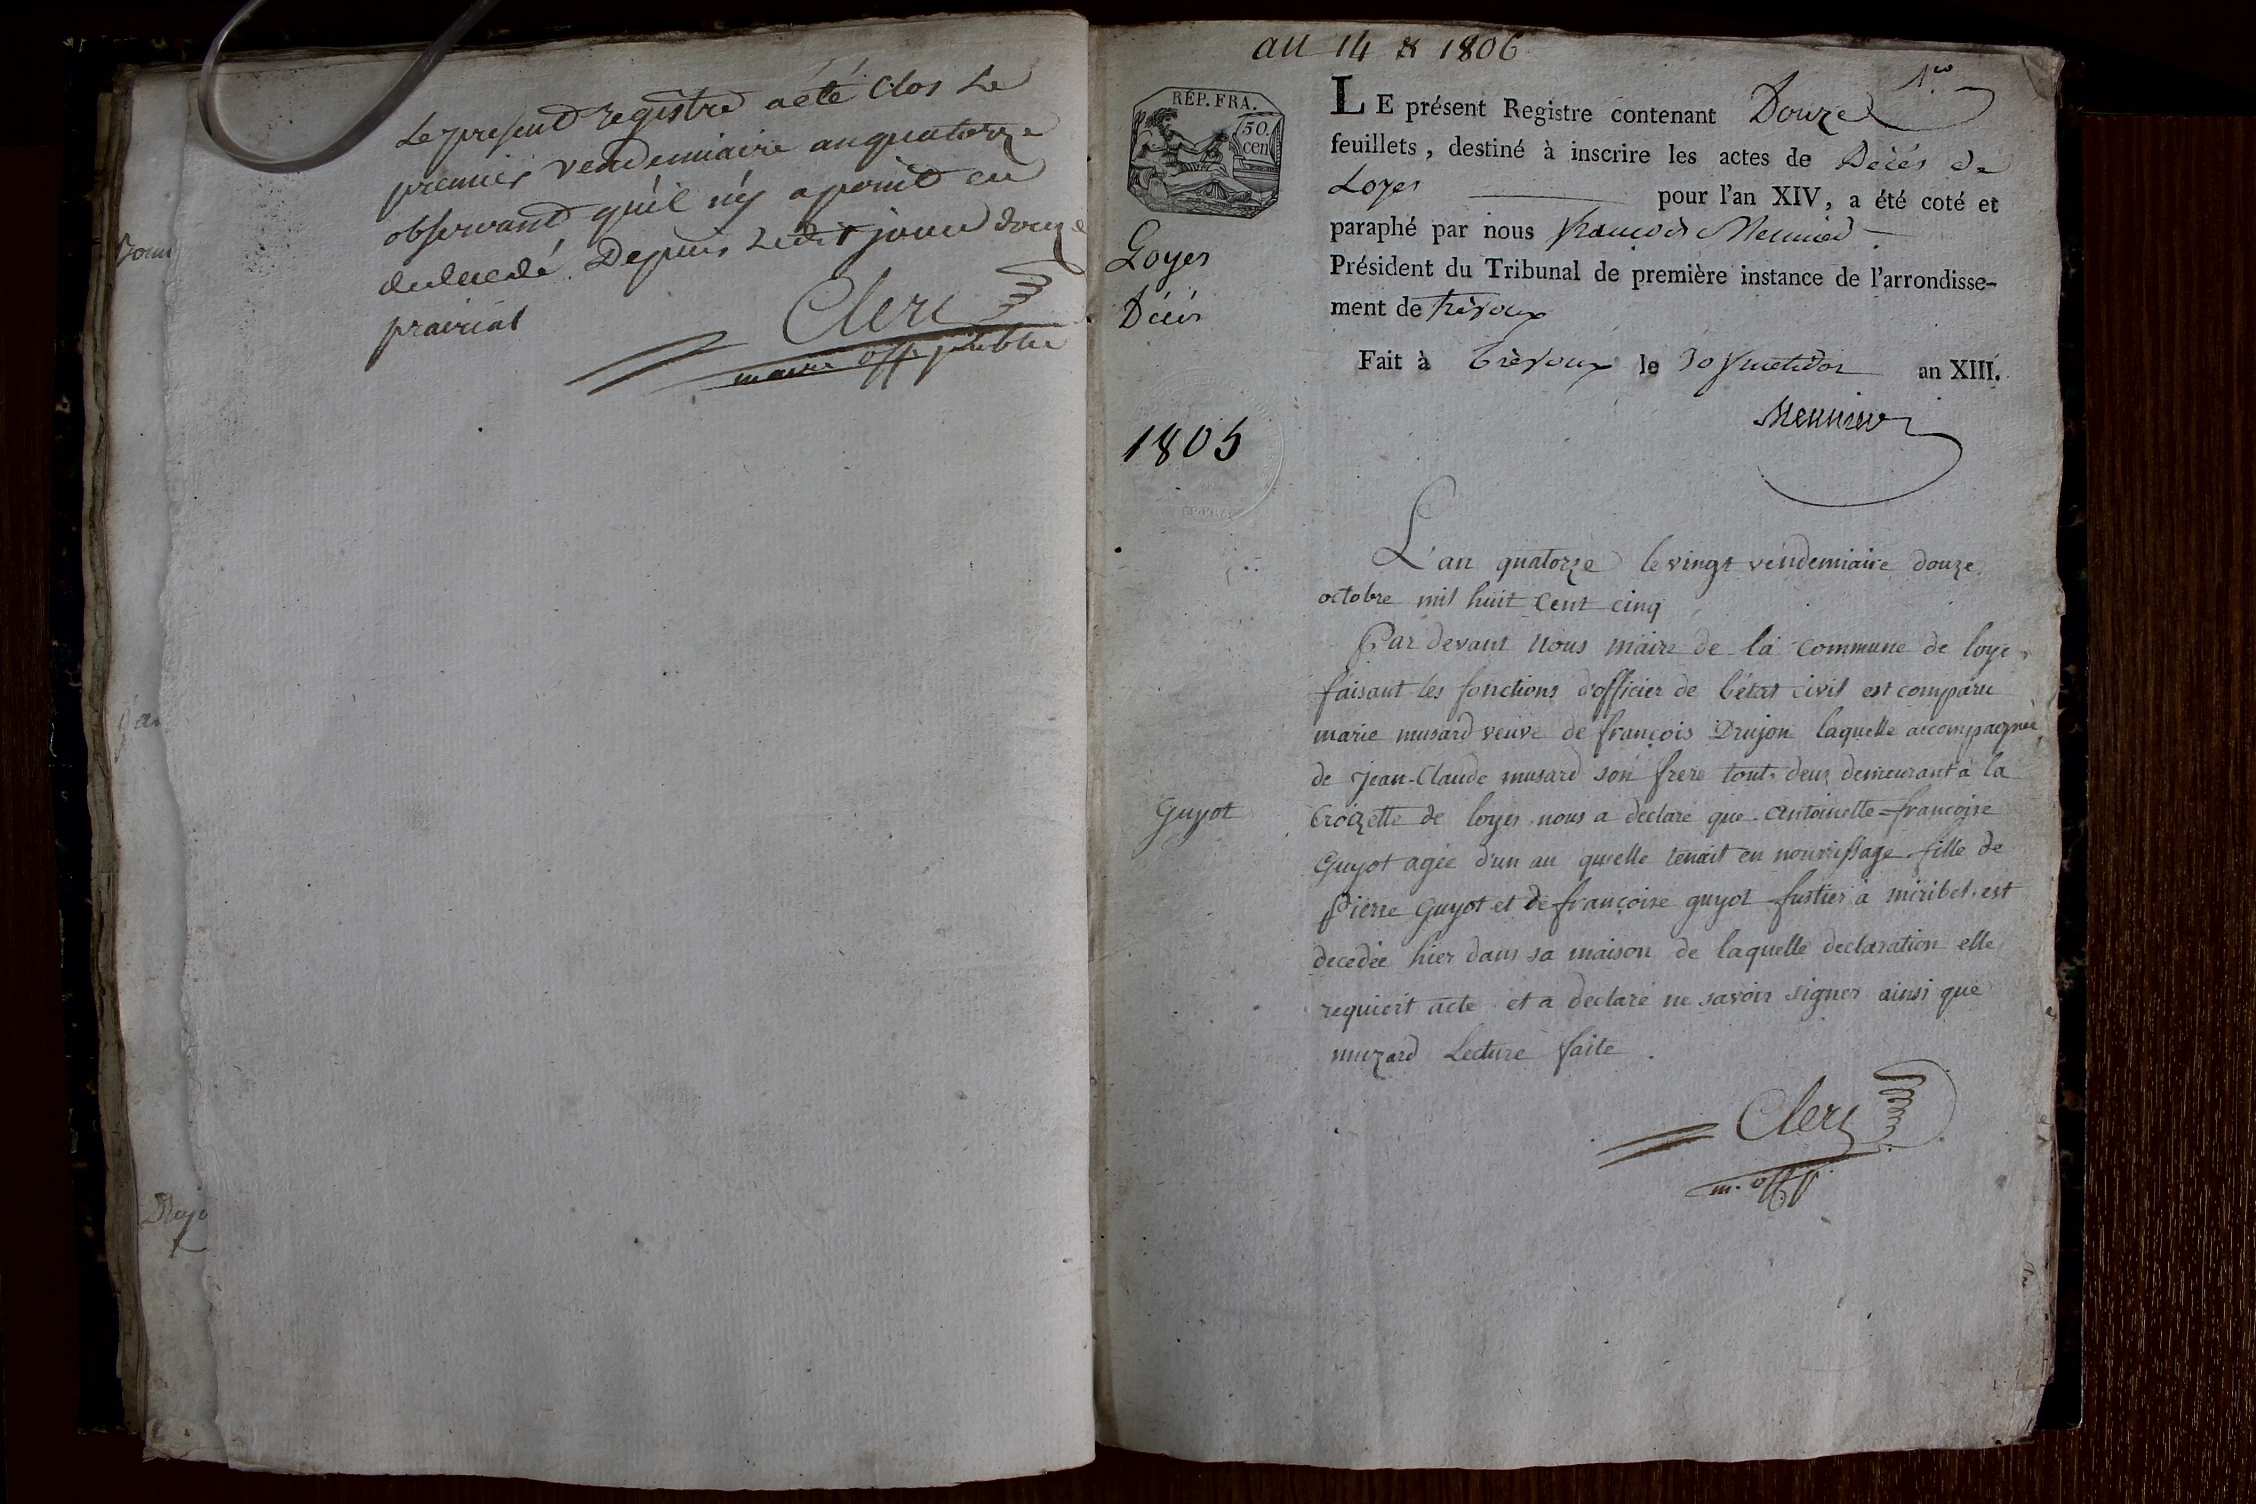 Le present registre a été Clos Le
premier vendemiaire an quatorze
observant qu'il n'y a point eu
de decedé Depuis Ledit jour douze
prairial
Clerc
maire off. public
an 14 & 1806
1er
RÉP. FRA.
50.
cen
LE présent Registre contenant Douze
feuillets, destiné à inscrire les actes de Décès de
Loyes pour l'an XIV, a été coté et
paraphé par nous françois Meunier
Président du Tribunal de première instance de l'arrondisse-
ment de trévoux
Fait à trévoux le 30 fructidor an XIII.
Meunier
Loyes
Décès
1805
L'an quatorze le vingt vendemiaire douze
octobre mil huit cent cinq
Par devant nous maire de la commune de loyes
faisant les fonctions d'officier de l'état civil est comparu
marie musard veuve de françois Drujon laquelle accompagnée
de jean-Claude musard son frere tout deux demeurant à la
Croizette de loyes nous a declaré que antoinette=françoise
Guyot agée d'un an qu'elle tenait en nourrissage fille de
Pierre Guyot et de françoise guyot fustier à miribel est
decedée hier dans sa maison de laquelle declaration elle
requiert acte et a declaré ne savoir signer ainsi que
muzard Lecture faite.
Guyot
Clerc
m. off. p.